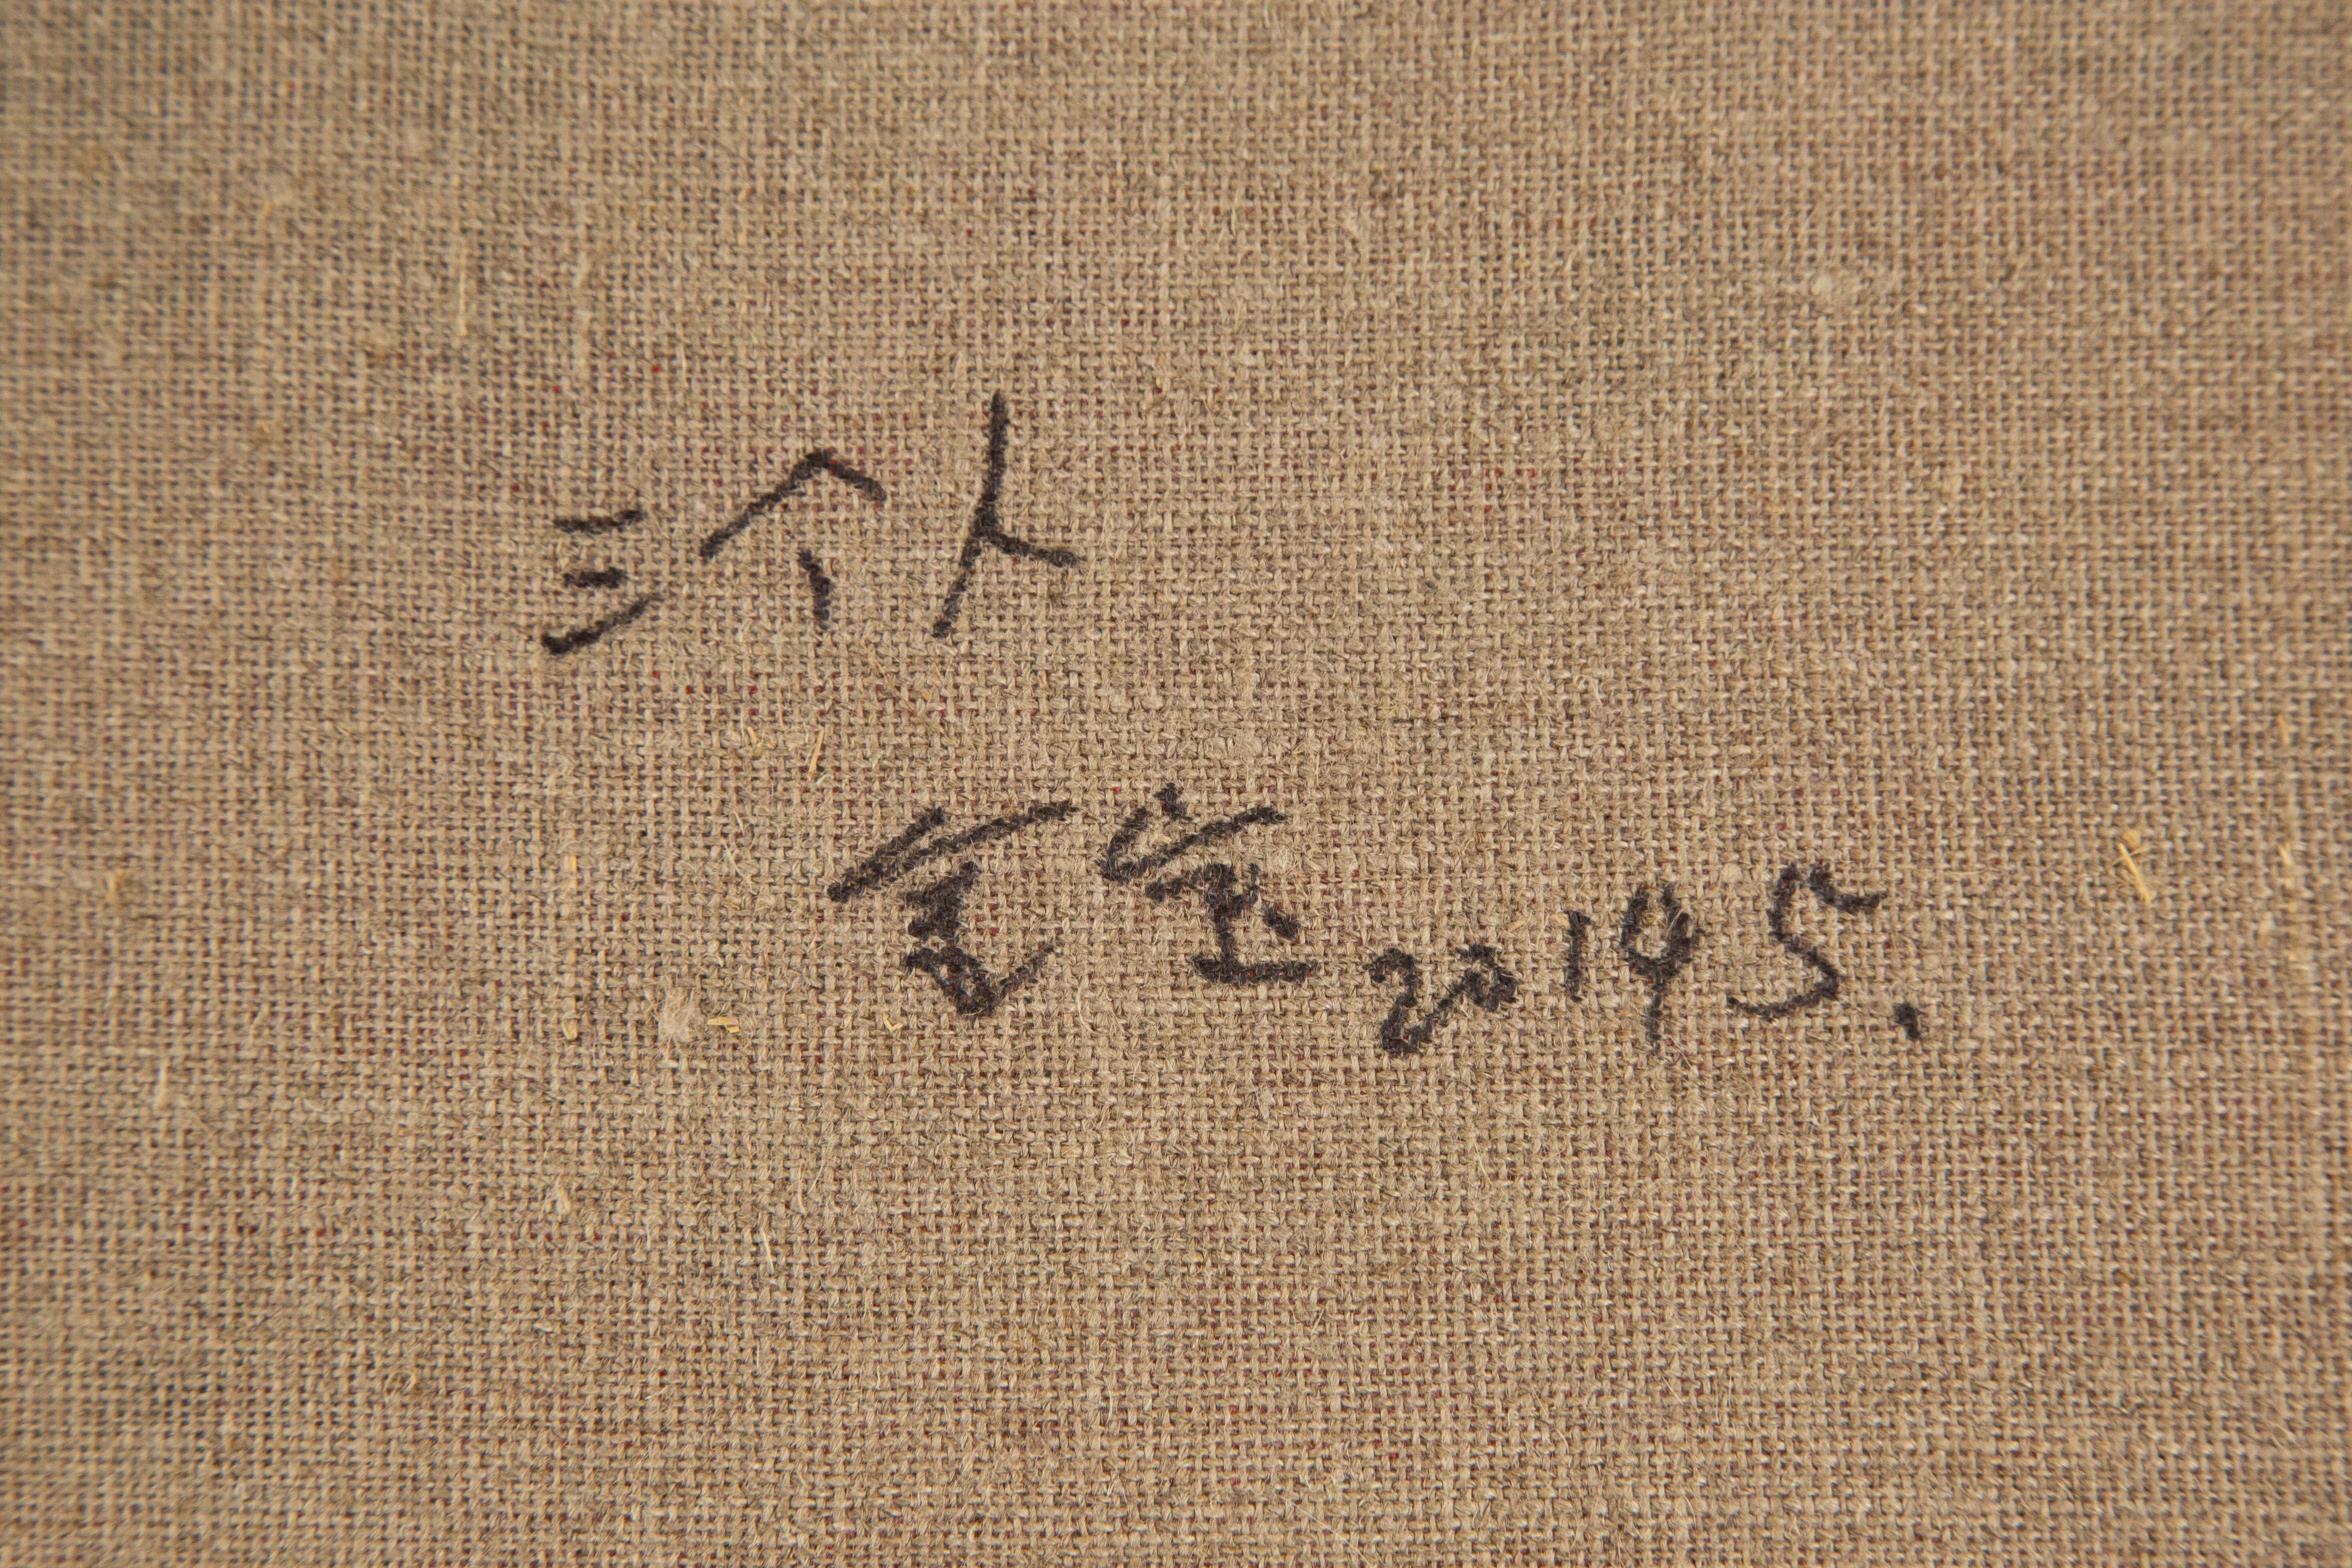 三个人
2014 5.